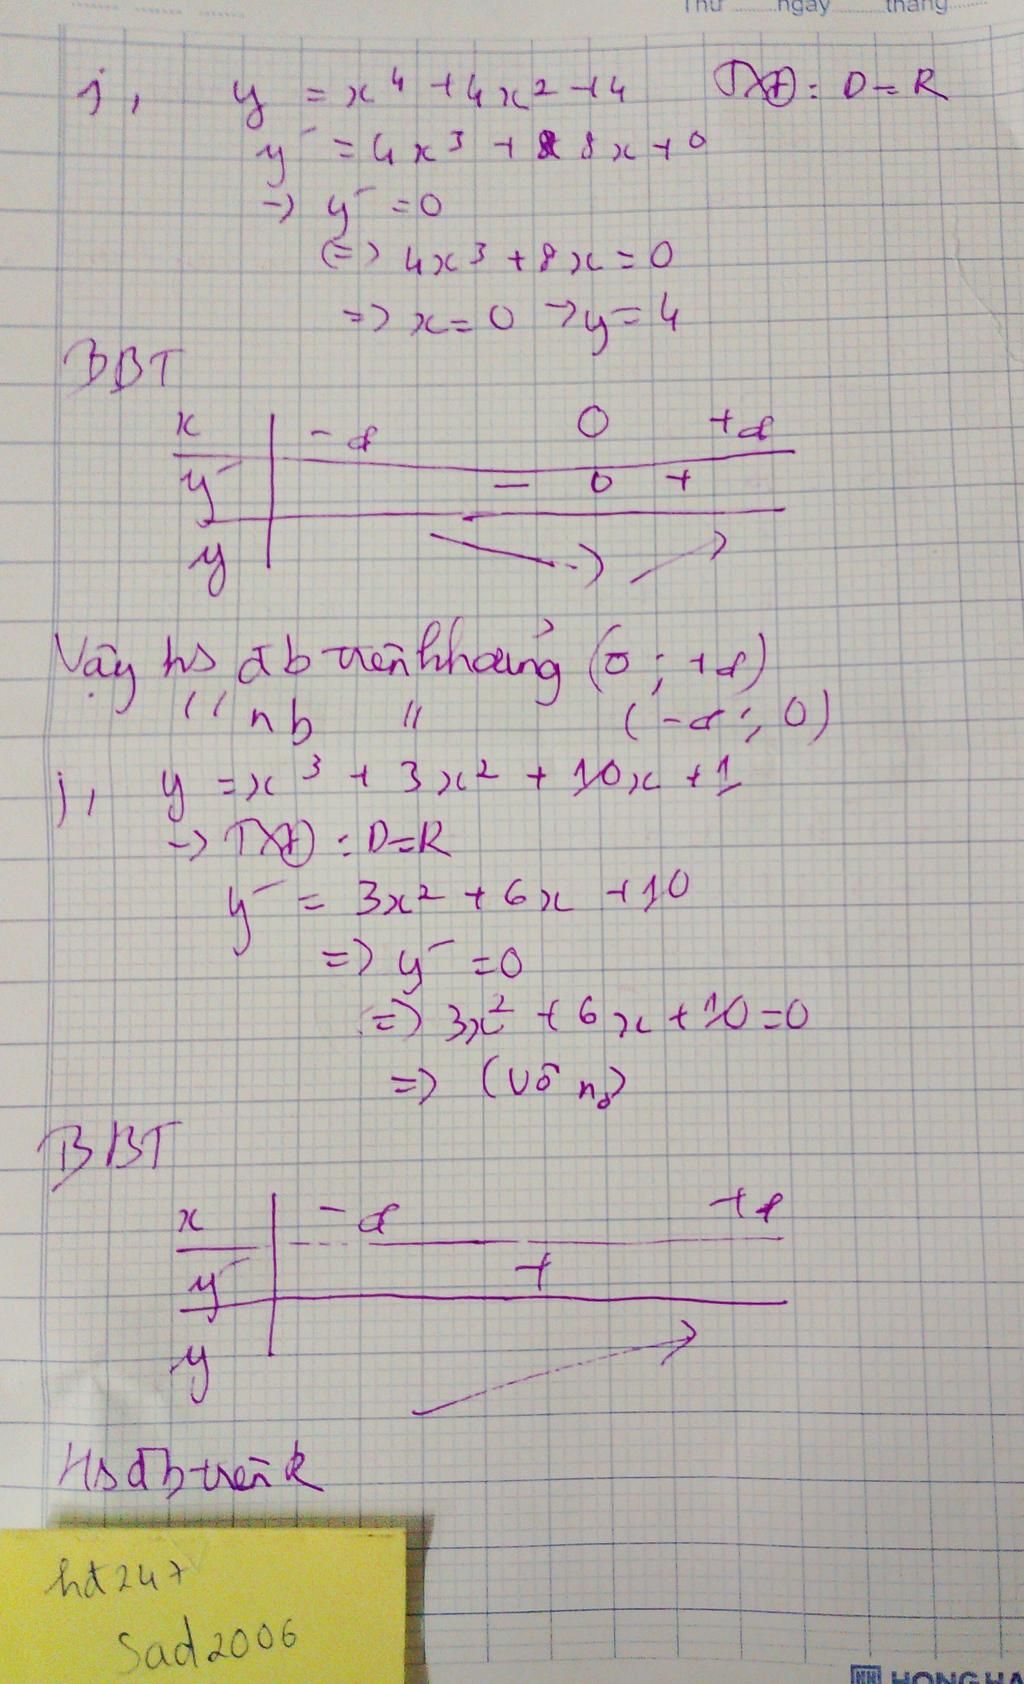 Thứ ngày tháng
j, y = x⁴ + 4x² + 4 TXĐ: D = R
y' = 4x³ + 8x + 0
→ y' = 0
(=> 4x³ + 8x = 0
=> x = 0 → y = 4
BBT
x -∞ 0 +∞
y' - 0 +
y
Vậy hs đb trên khoảng (0; +∞)
" nb " (-∞; 0)
j, y = x³ + 3x² + 10x + 1
→ TXĐ: D = R
y' = 3x² + 6x + 10
=> y' = 0
=> 3x² + 6x + 10 = 0
=> (vô no)
BBT
x -∞ +∞
y' +
y
Hs đb trên R
hđ247
Sad2006
HONG HA